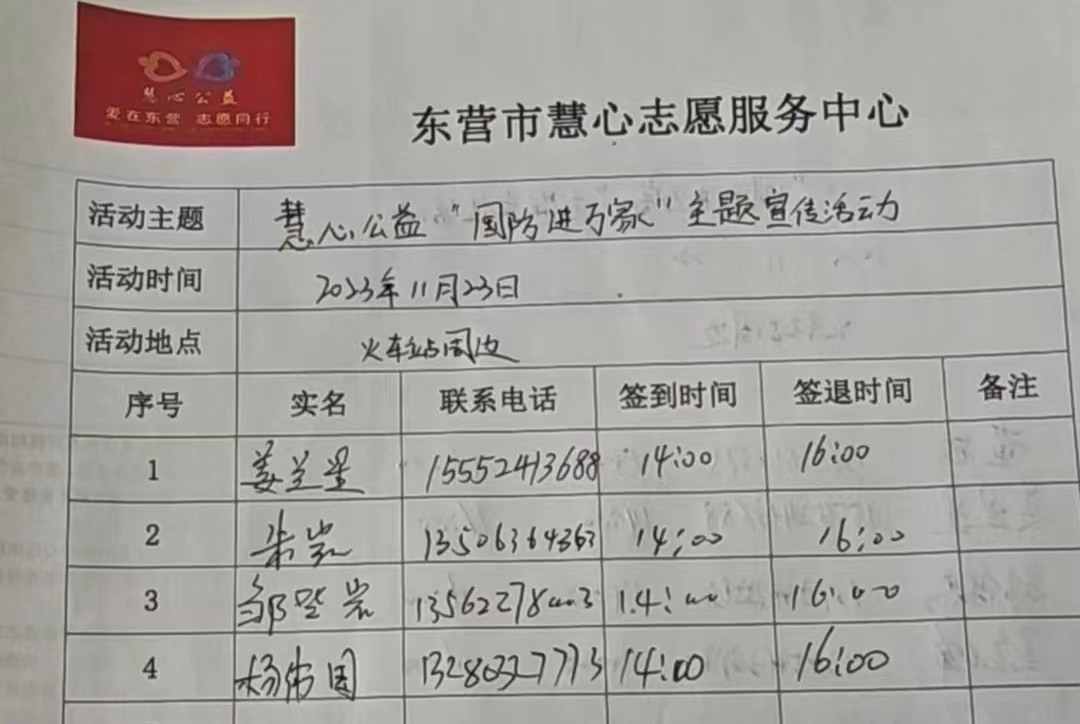 慧心公益
爱在东营 志愿同行
东营市慧心志愿服务中心
活动主题 慧心公益"国防进万家"主题宣传活动
活动时间 2023年11月23日
活动地点 火车站周边
序号 实名 联系电话 签到时间 签退时间 备注
1 姜兰星 15552413688 14:00 16:00
2 朱岩 13506364363 14:00 16:00
3 邹 岩 13562278003 14:00 16:00
4 杨伟国 13280327773 14:00 16:00